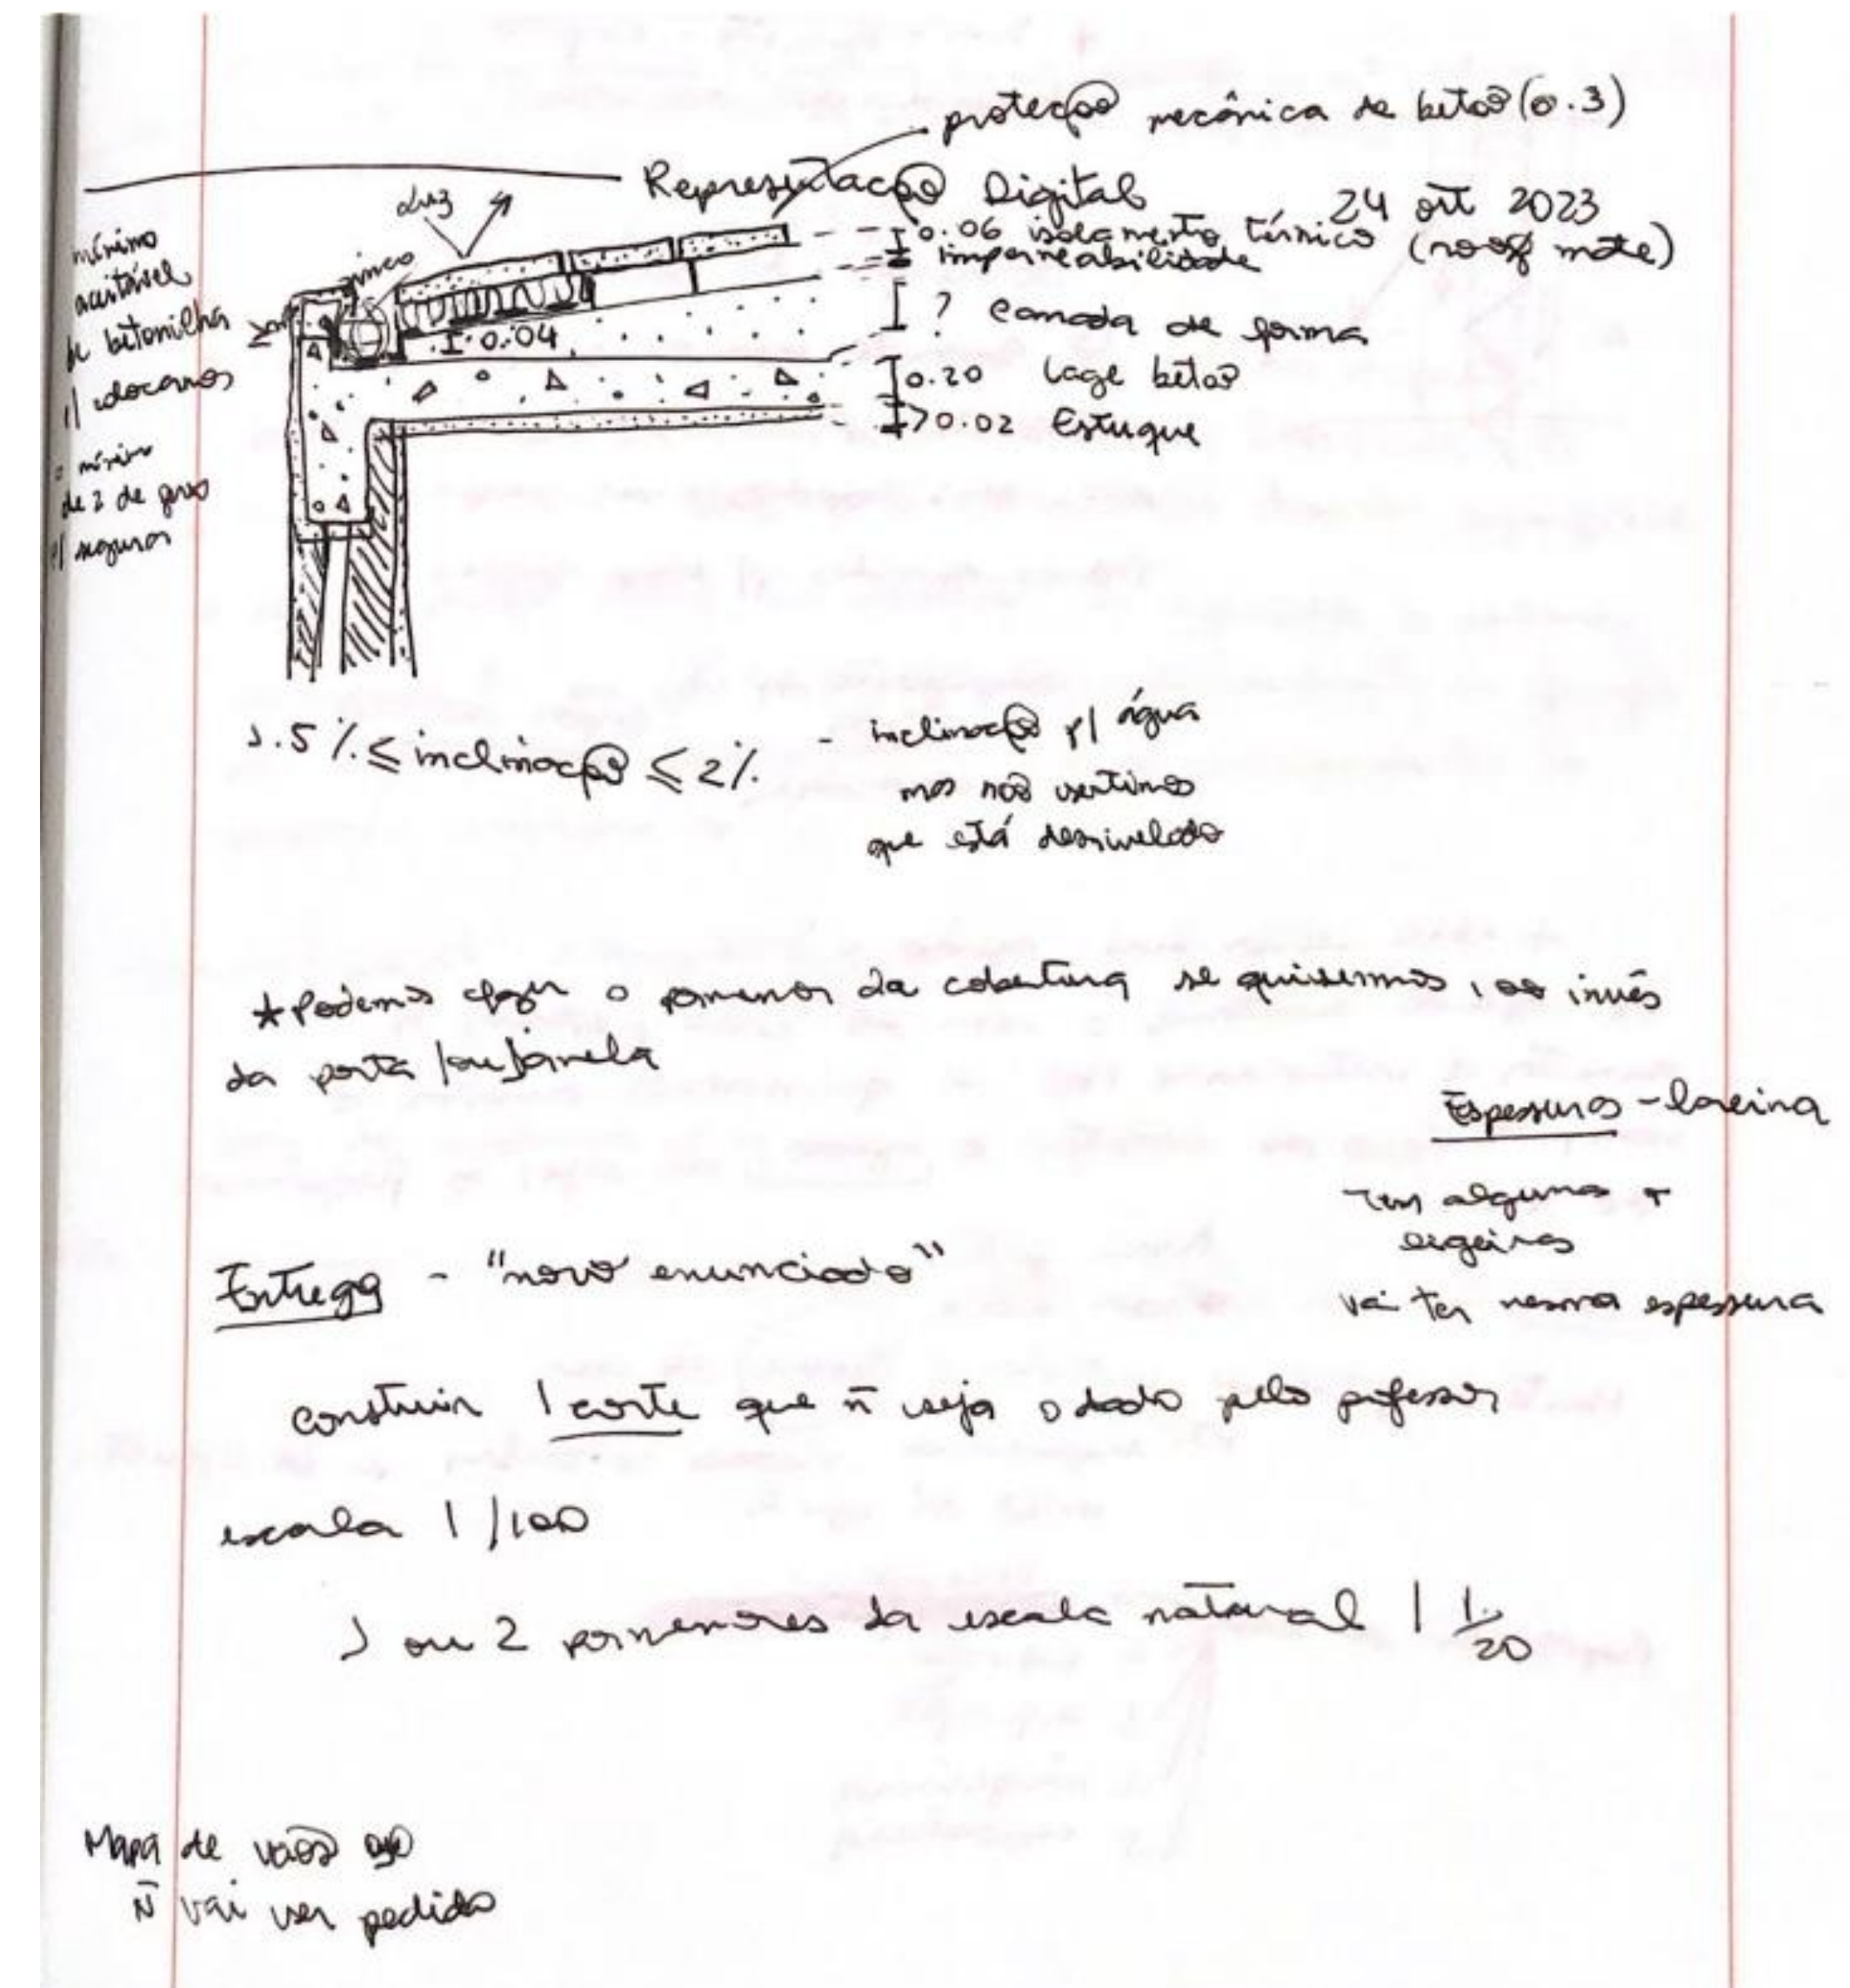 proteção mecânica de betão (0.3)
Representação Digital 24 out 2023
Luz
zinco
0.06 isolamento térmico (roof mate)
impermeabilidade
? camada de forma
0.04
0.20 Lage betão
>0.02 Estuque
mínimo
aceitável
de betonilha
p/ colocarmos
o mínimo
de 2 de gros
p/ segurar
1.5% ≤ inclinação ≤ 2% - inclinação p/ água
mas não sentimos
que está desnivelado
* Podemos fazer o pormenor da cobertura se quisermos, ao invés
da porta /ou/janela
Espessuras - lareira
tem algumas +
ligeiras
vai ter mesma espessura
Entrega - "novo enunciado"
construir 1 corte que ñ seja o dado pelo professor
escala 1/100
1 ou 2 pormenores da escala natural | 1/20
Mapa de vãos
Ñ vai ser pedido